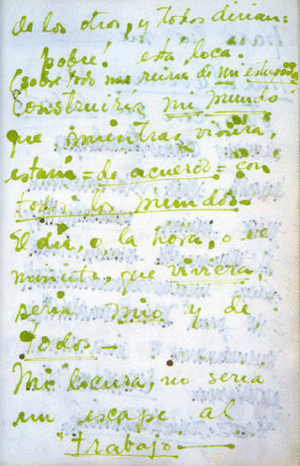 de los otros, y todos dirian=
pobre! está loca.
(sobre todo me reiria de mi estupidez)
Construiria mi mundo
que mientras viviera,
estaria = de acuerdo = con
todos los mundos—
El dia, o la hora, o el
minuto, que viviera,
seria mio y de
todos —
Mi locura, no seria
un escape al
"trabajo" —